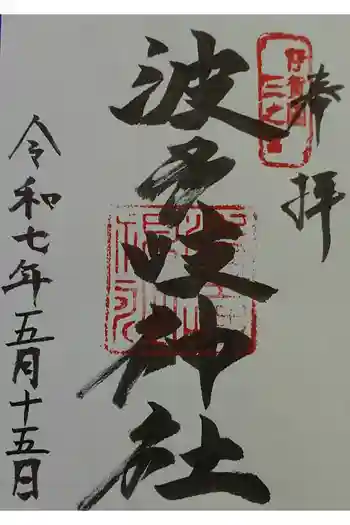 奉拝
伊賀國
三之宮
波多岐神社
令和七年五月十五日